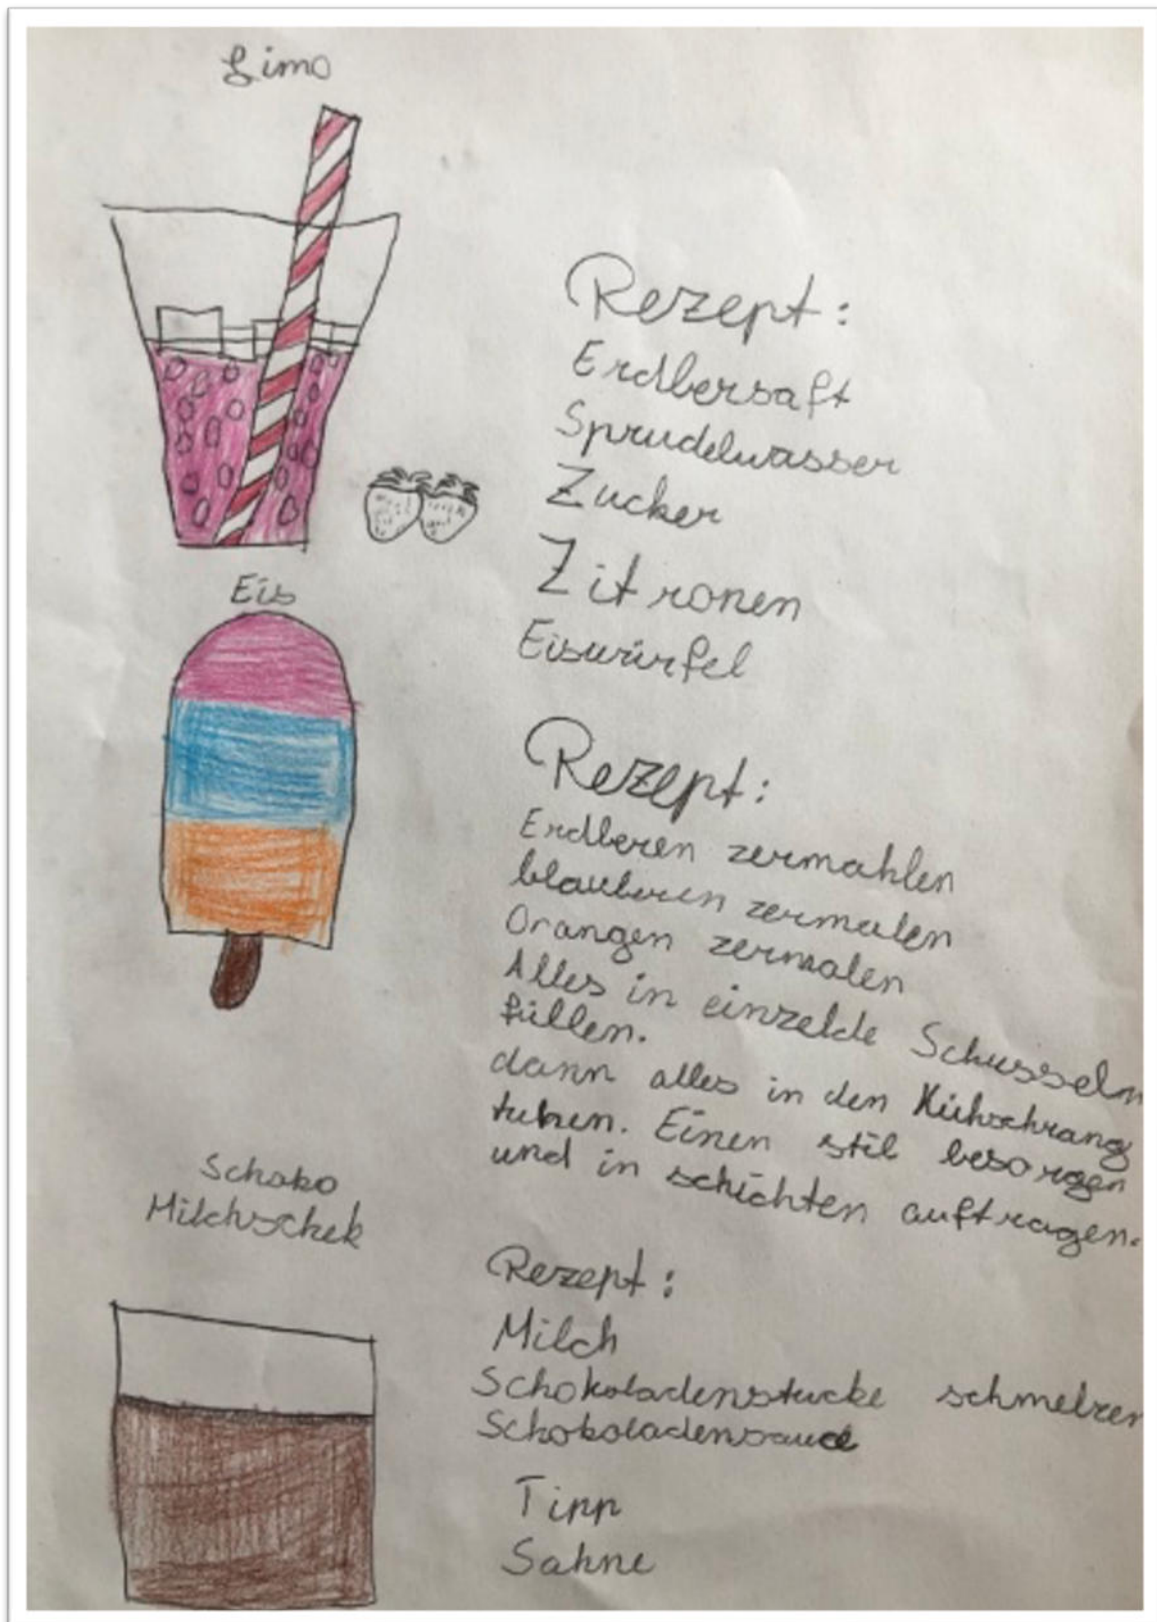 Limo
Rezept:
Erdbersaft
Sprudelwasser
Zucker
Zitronen
Eiswürfel
Eis
Rezept:
Erdberen zermahlen
blauberen zermalen
Orangen zermalen
Alles in einzelde Schusseln
füllen.
dann alles in den Kühschrang
tuhen. Einen stil besorgen
und in schichten auftragen.
Schoko
Milchschek
Rezept:
Milch
Schokoladenstucke schmelzen
Schokoladensauce
Tipp
Sahne